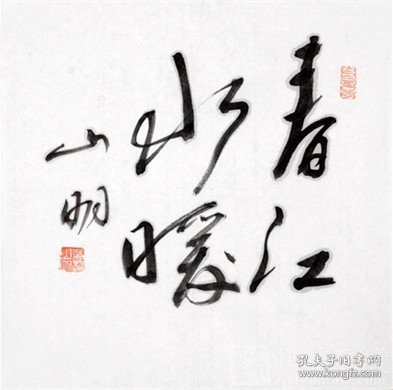 春江
水暖
山明
孔夫子旧书网
www.kongfz.com